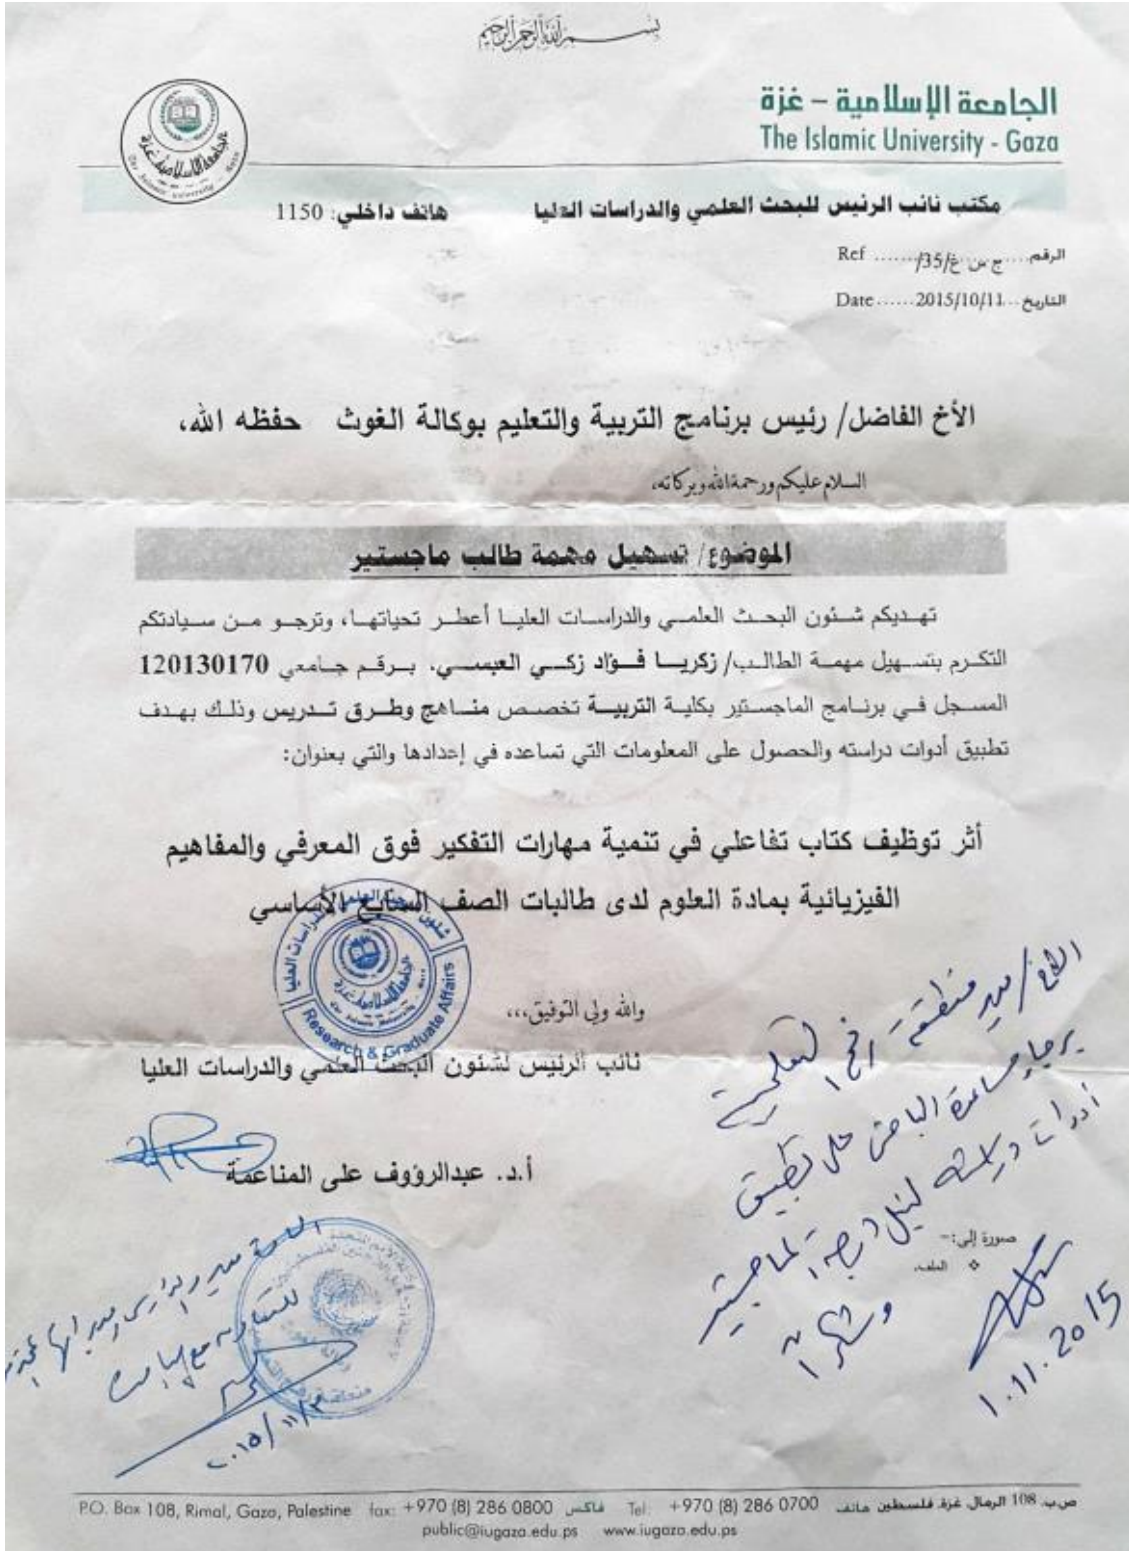 بسم الله الرحمن الرحيم
الجامعة الإسلامية – غزة
The Islamic University - Gaza
مكتب نائب الرئيس للبحث العلمي والدراسات العليا هاتف داخلي: 1150
الرقم......ج س غ/35/...... Ref
التاريخ...2015/10/11...... Date
الأخ الفاضل/ رئيس برنامج التربية والتعليم بوكالة الغوث حفظه الله،
السلام عليكم ورحمة الله وبركاته،
الموضوع/ تسهيل مهمة طالب ماجستير
تهديكم شئون البحث العلمي والدراسات العليا أعطر تحياتها، وترجو من سيادتكم
التكرم بتسهيل مهمة الطالب/ زكريا فؤاد زكي العبسي، برقم جامعي 120130170
المسجل في برنامج الماجستير بكلية التربية تخصص مناهج وطرق تدريس وذلك بهدف
تطبيق أدوات دراسته والحصول على المعلومات التي تساعده في إعدادها والتي بعنوان:
أثر توظيف كتاب تفاعلي في تنمية مهارات التفكير فوق المعرفي والمفاهيم
الفيزيائية بمادة العلوم لدى طالبات الصف السابع الأساسي
شئون البحث العلمي والدراسات العليا
الجامعة الإسلامية غزة
Research & Graduate Affairs
والله ولي التوفيق،،،
نائب الرئيس لشئون البحث العلمي والدراسات العليا
أ.د. عبدالرؤوف على المناعمة
الأخ / مدير منطقة رفح التعليمية
يرجى مساعدة الباحث على تطبيق
أدوات دراسته لنيل درجة الماجستير
وشكراً
1.11.2015
صورة إلى:-
❖ الملف.
للتعاون مع الباحث
P.O. Box 108, Rimal, Gaza, Palestine fax: +970 (8) 286 0800 فاكس Tel: +970 (8) 286 0700 ص.ب. 108 الرمال, غزة, فلسطين هاتف
public@iugaza.edu.ps www.iugaza.edu.ps